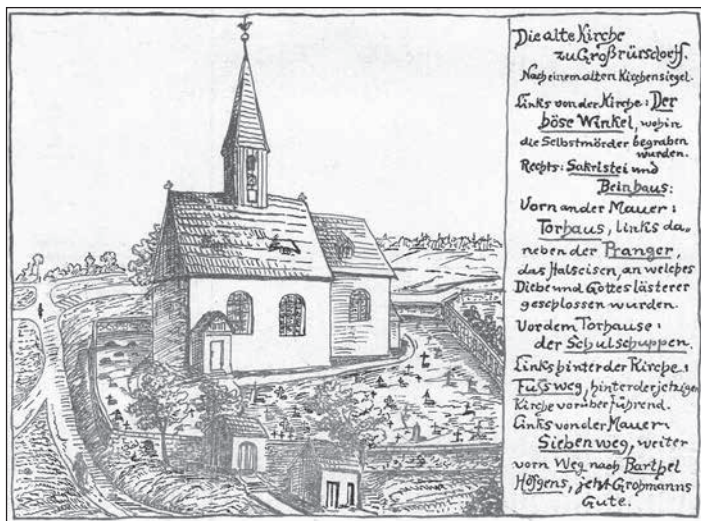 Die alte Kirche
zu Großrürsdorff.
Nach einem alten Kirchensiegel.
Links von der Kirche: Der
böse Winkel, wohin
die Selbstmörder begraben
wurden.
Rechts: Sakristei und
Beinhaus:
Vorn an der Mauer:
Torhaus, links da-
neben der Pranger,
das Halseisen, an welches
Diebe und Gotteslästerer
geschlossen wurden.
Vor dem Torhause:
der Schulschuppen.
Links hinter der Kirche:
Fussweg, hinter der jetzigen
Kirche vorüberführend.
Links von der Mauer:
Siebenweg, weiter
vorn Weg nach Barthel
Hössgens, jetzt Grohmanns
Gute.